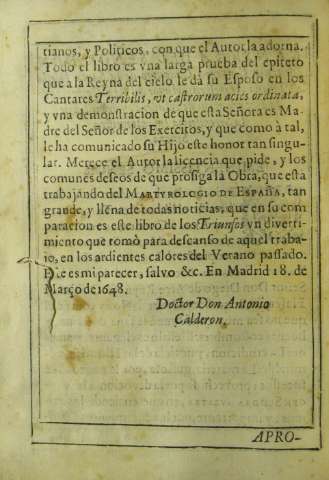 tianos, y Politicos, con que el Autor la adorna.
Todo el libro es vna larga prueba del epiteto
que a la Reyna del cielo le dà su Esposo en los
Cantares Terribilis, vt castrorum acies ordinata,
y vna demonstracion de que esta Señora es Ma-
dre del Señor de los Exercitos, y que como à tal,
le ha comunicado su Hijo este honor tan singu-
lar. Merece el Autor la licencia que pide, y los
comunes deseos de que prosiga la Obra, que està
trabajando del MARTYROLOGIO DE ESPAÑA, tan
grande, y llena de todas noticias, que en su com
paracion es este libro de los Triunfos vn diverti-
miento que tomò para descanso de aquel traba-
jo, en los ardientes calores del Verano passado.
Este es mi parecer, salvo &c. En Madrid 18. de
Março de 1648.
Doctor Don Antonio
Calderon.
APRO-